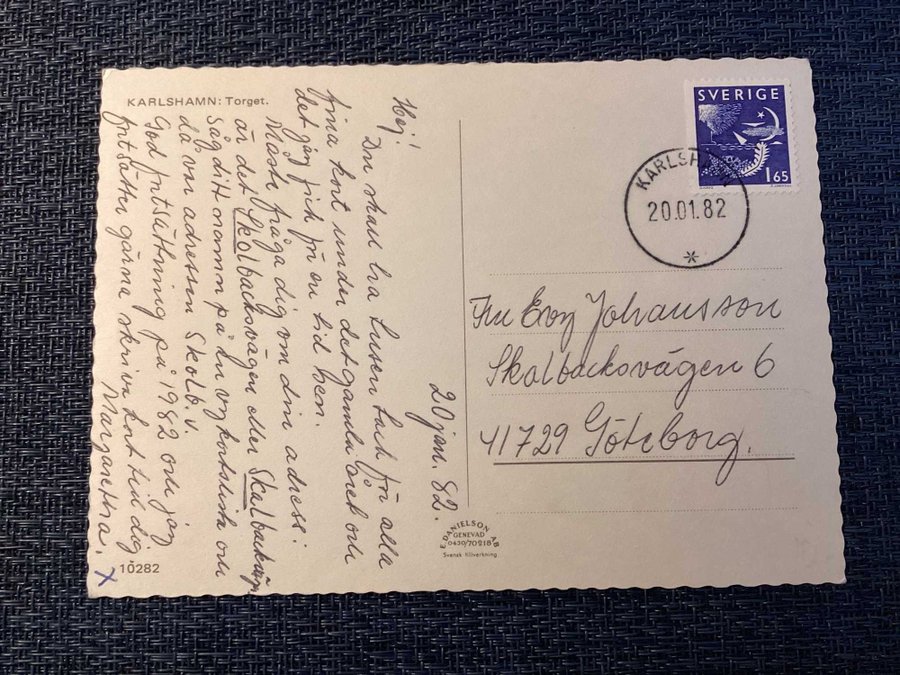 KARLSHAMN: Torget.
20 jan. 82.
Hej!
Du skall ha tusen tack för alla
fina kort under det gamla året och
det går fick för en tid sen.
Måste fråga dig om din adress:
är det Skolbacksvägen eller Skalbacksv.
Såg ditt namn på en vykortslista och
då var adressen Skolb.v.
God fortsättning på 1982 och jag
fortsätter gärna skriva kort till dig
Margaretha.
X 10282
SVERIGE
1 65
KARLSHAMN
20.01.82
Fru Evy Johansson
Skalbacksvägen 6
41729 Göteborg.
E. DANIELSON AB
GENEVAD
0430/70218
Svensk tillverkning.